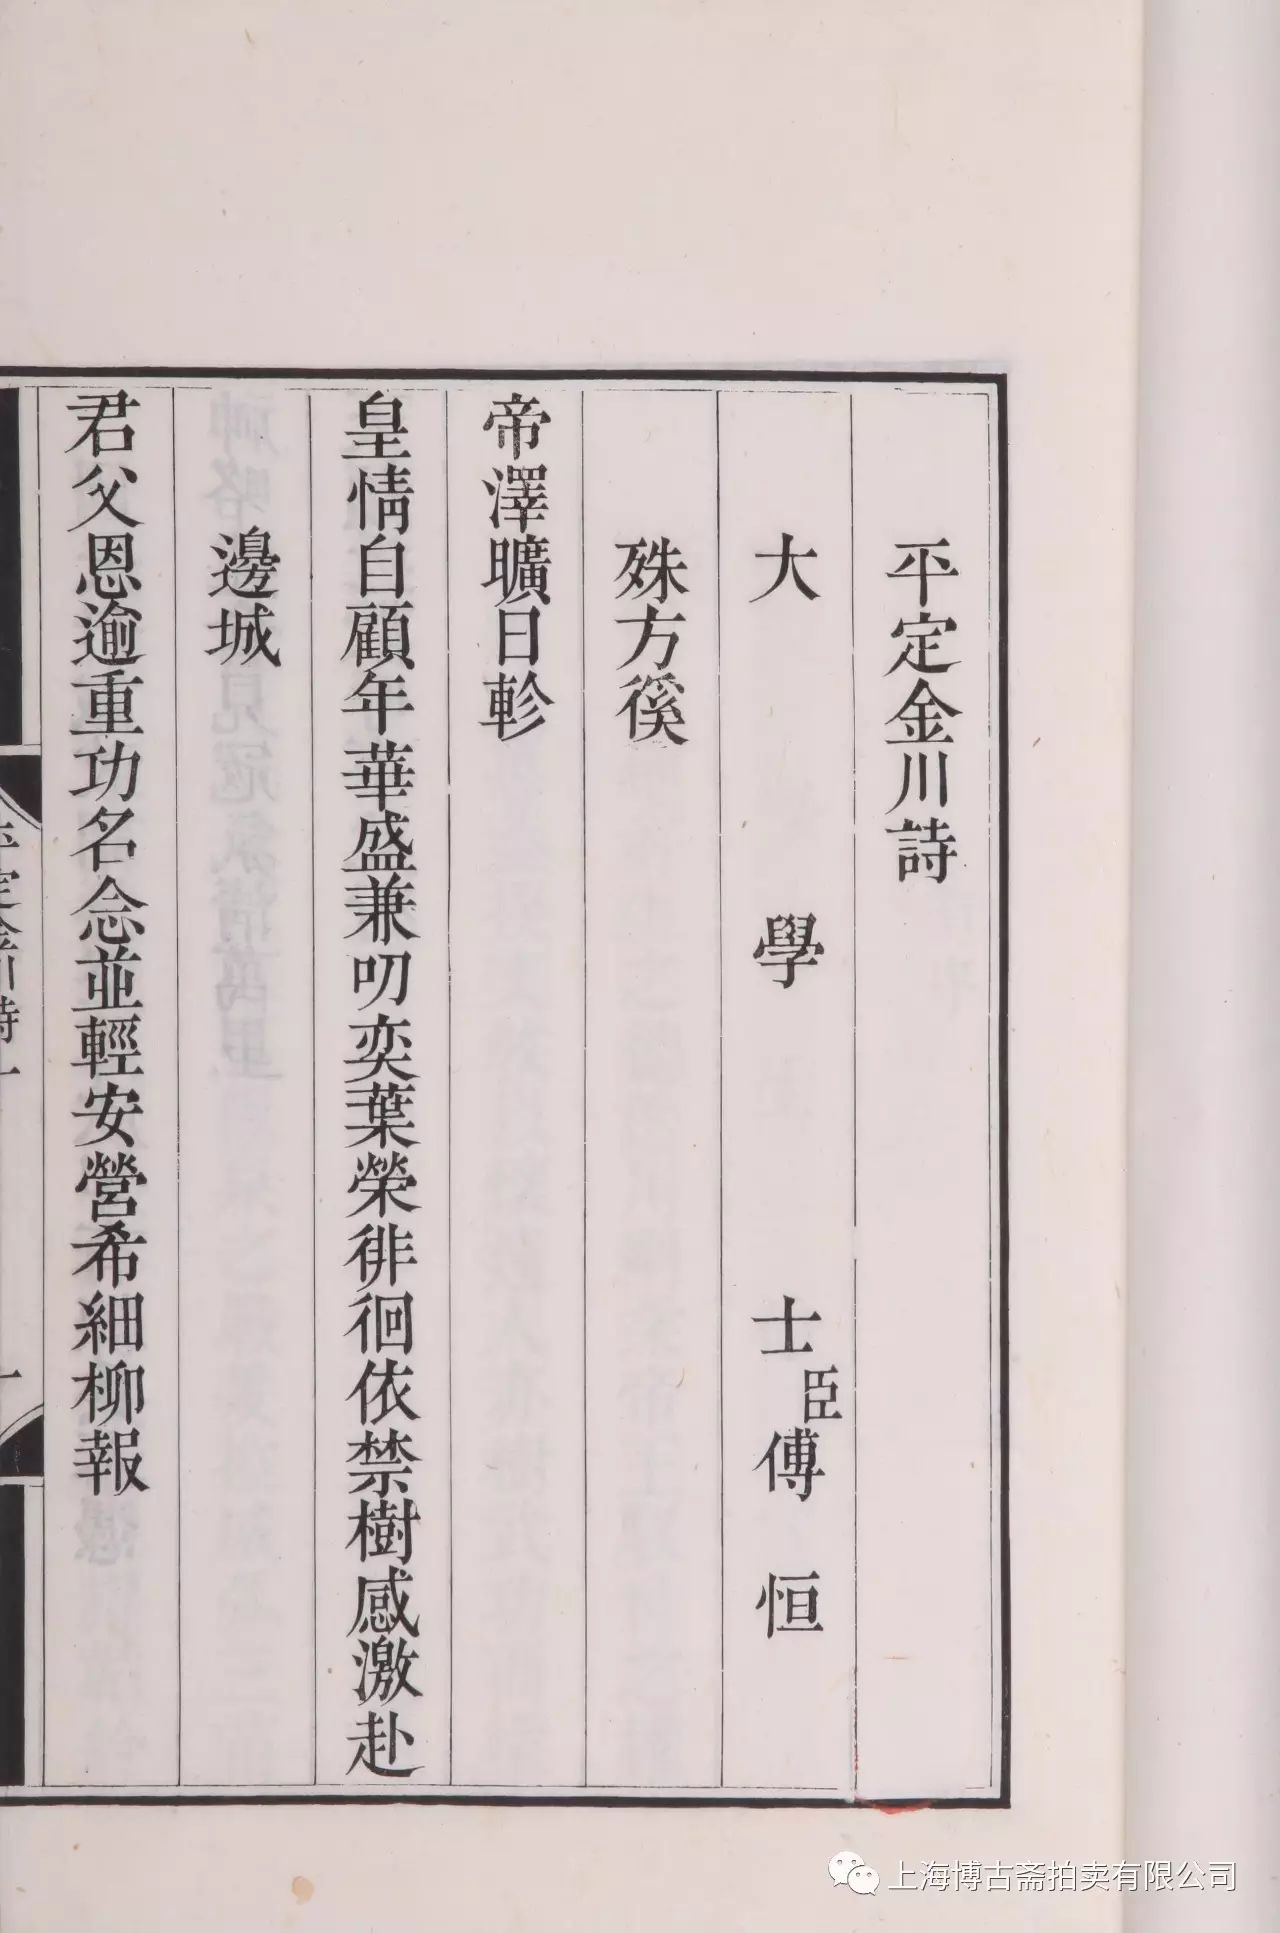 平定金川詩
大學士臣傅恒
殊方徯
帝澤曠日軫
皇情自顧年華盛兼叨奕葉榮徘徊依禁樹感激赴
邊城
君父恩逾重功名念並輕安營希細柳報
平定金川詩
上海博古斋拍卖有限公司